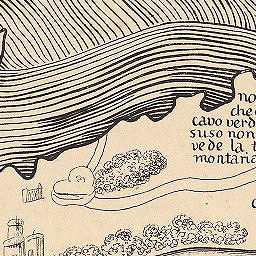 no
che
cavo verd
suso non
vede la t
montaria